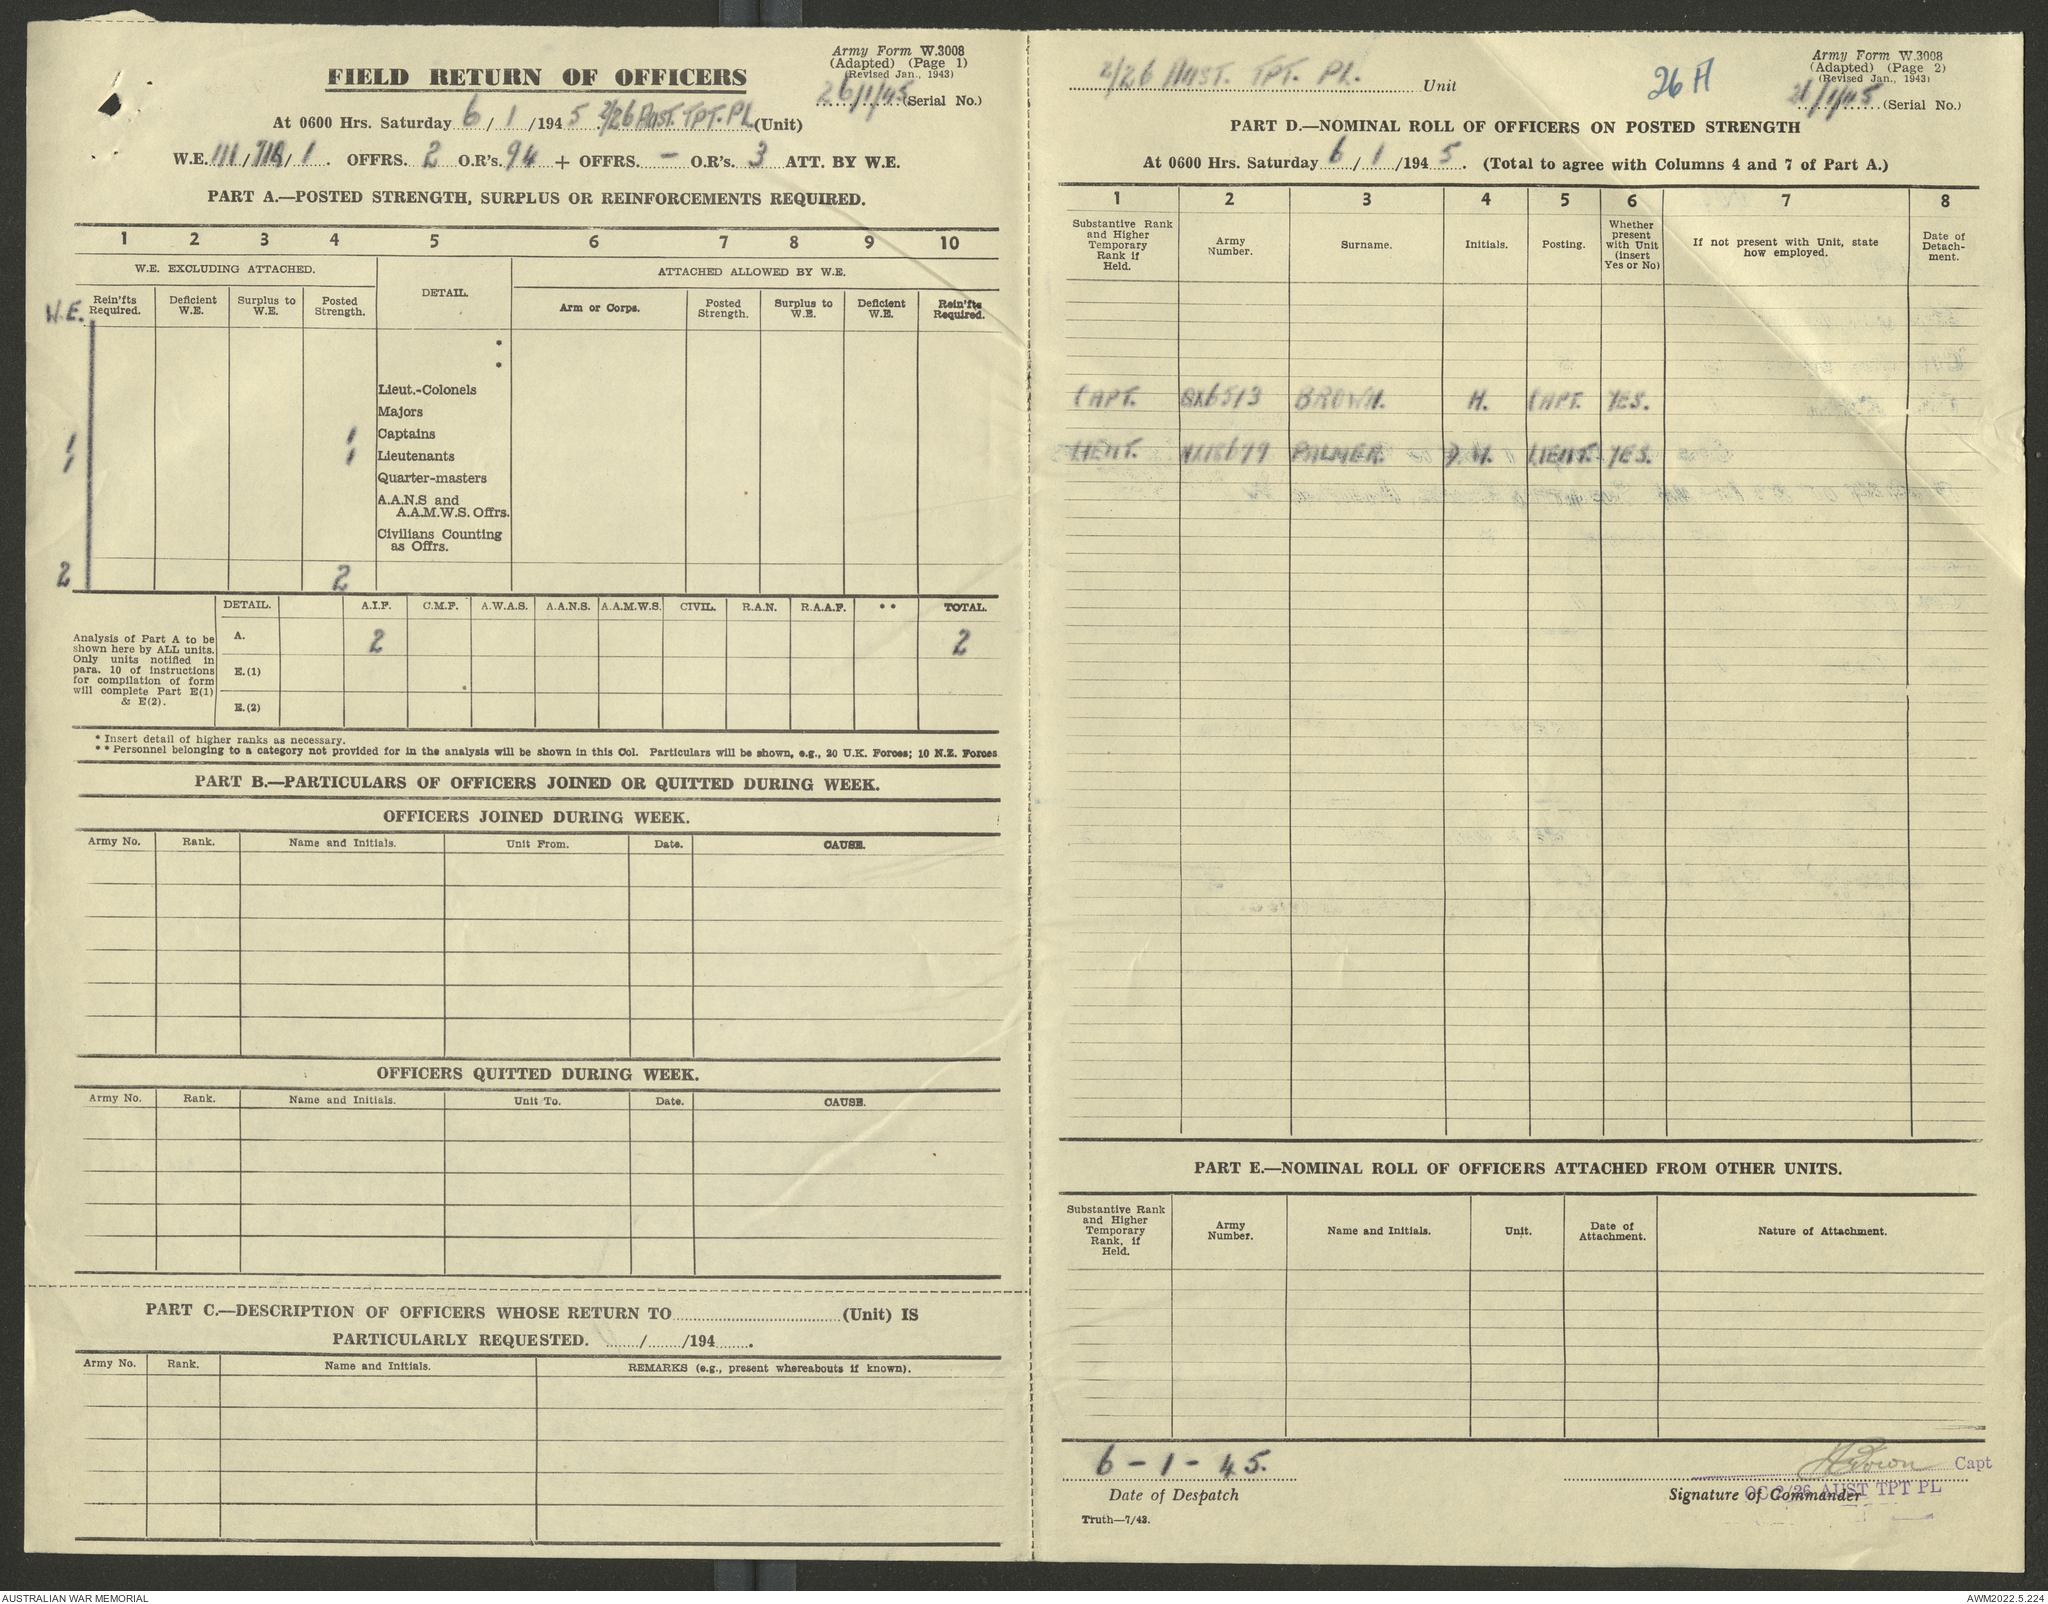 Army Form W.3008
(Adapted) (Page 1)
(Revised Jan., 1943)
FIELD RETURN OF OFFICERS
26/1/45 (Serial No.)
At 0600 Hrs. Saturday 6/1/1945. 2/26 Aust. TPT. PL (Unit)
W.E. 111/ /1. OFFRS. 2 O.R's. 94 + OFFRS. — O.R's. 3 ATT. BY W.E.
PART A.—POSTED STRENGTH, SURPLUS OR REINFORCEMENTS REQUIRED.
1 2 3 4 5 6 7 8 9 10
W.E. EXCLUDING ATTACHED. DETAIL. ATTACHED ALLOWED BY W.E.
W.E. Rein'fts Required. Deficient W.E. Surplus to W.E. Posted Strength. Arm or Corps. Posted Strength. Surplus to W.E. Deficient W.E. Rein'fts Required.
*
*
Lieut.-Colonels
Majors
1 1 Captains
1 1 Lieutenants
Quarter-masters
A.A.N.S and
A.A.M.W.S. Offrs.
Civilians Counting
as Offrs.
2 2
DETAIL. A.I.F. C.M.F. A.W.A.S. A.A.N.S. A.A.M.W.S. CIVIL. R.A.N. R.A.A.F. ** TOTAL.
Analysis of Part A to be
shown here by ALL units.
Only units notified in
para. 10 of instructions
for compilation of form
will complete Part E(1)
& E(2).
A. 2 2
E.(1)
E.(2)
* Insert detail of higher ranks as necessary.
** Personnel belonging to a category not provided for in the analysis will be shown in this Col. Particulars will be shown, e.g., 20 U.K. Forces; 10 N.Z. Forces
PART B.—PARTICULARS OF OFFICERS JOINED OR QUITTED DURING WEEK.
OFFICERS JOINED DURING WEEK.
Army No. Rank. Name and Initials. Unit From. Date. CAUSE.
OFFICERS QUITTED DURING WEEK.
Army No. Rank. Name and Initials. Unit To. Date. CAUSE.
PART C.—DESCRIPTION OF OFFICERS WHOSE RETURN TO (Unit) IS
PARTICULARLY REQUESTED. / /194 .
Army No. Rank. Name and Initials. REMARKS (e.g., present whereabouts if known).
2/26 Aust. TPT. PL. Unit
26A
Army Form W.3008
(Adapted) (Page 2)
(Revised Jan., 1943)
26/1/45 (Serial No.)
PART D.—NOMINAL ROLL OF OFFICERS ON POSTED STRENGTH
At 0600 Hrs. Saturday 6/1/1945. (Total to agree with Columns 4 and 7 of Part A.)
1 2 3 4 5 6 7 8
Substantive Rank and Higher Temporary Rank if Held. Army Number. Surname. Initials. Posting. Whether present with Unit (insert Yes or No) If not present with Unit, state how employed. Date of Detachment.
CAPT. QX6513 BROWN. H. CAPT. YES.
LIEUT. NX18679 PALMER. LIEUT. YES.
PART E.—NOMINAL ROLL OF OFFICERS ATTACHED FROM OTHER UNITS.
Substantive Rank and Higher Temporary Rank, if Held. Army Number. Name and Initials. Unit. Date of Attachment. Nature of Attachment.
6-1-45.
HBrown Capt
Date of Despatch
Signature of Commander
OC 2/26 AUST TPT PL
Truth—7/43.
AUSTRALIAN WAR MEMORIAL
AWM2022.5.224